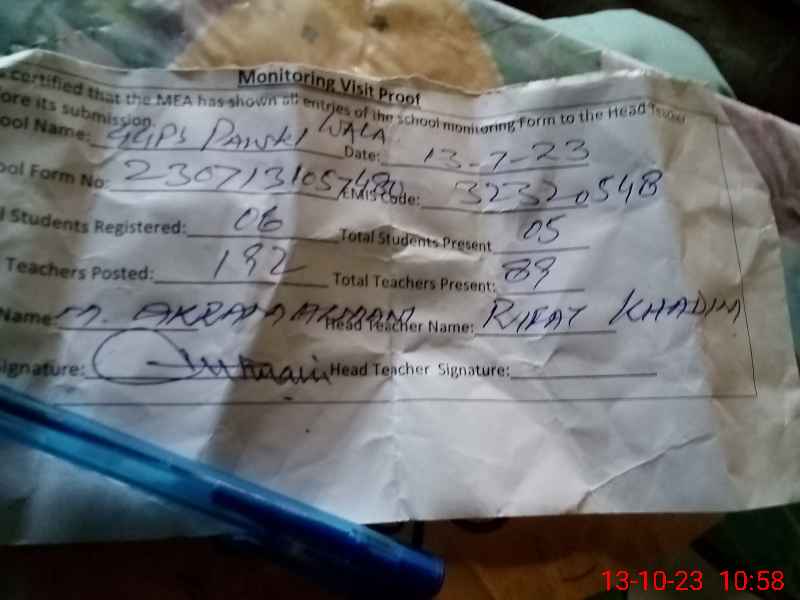 Monitoring Visit Proof
certified that the MEA has shown all entries of the school monitoring Form to the Head Teacher
ore its submission.
ool Name: GGPS WALA Date: 13-7-23
ool Form No: EMIS Code: 32320548
l Students Registered: 06 Total Students Present 05
Teachers Posted: 192 Total Teachers Present: 89
Name: M. AKRAM Head Teacher Name: RIFAT KHADIM
ignature: Head Teacher Signature:
13-10-23 10:58